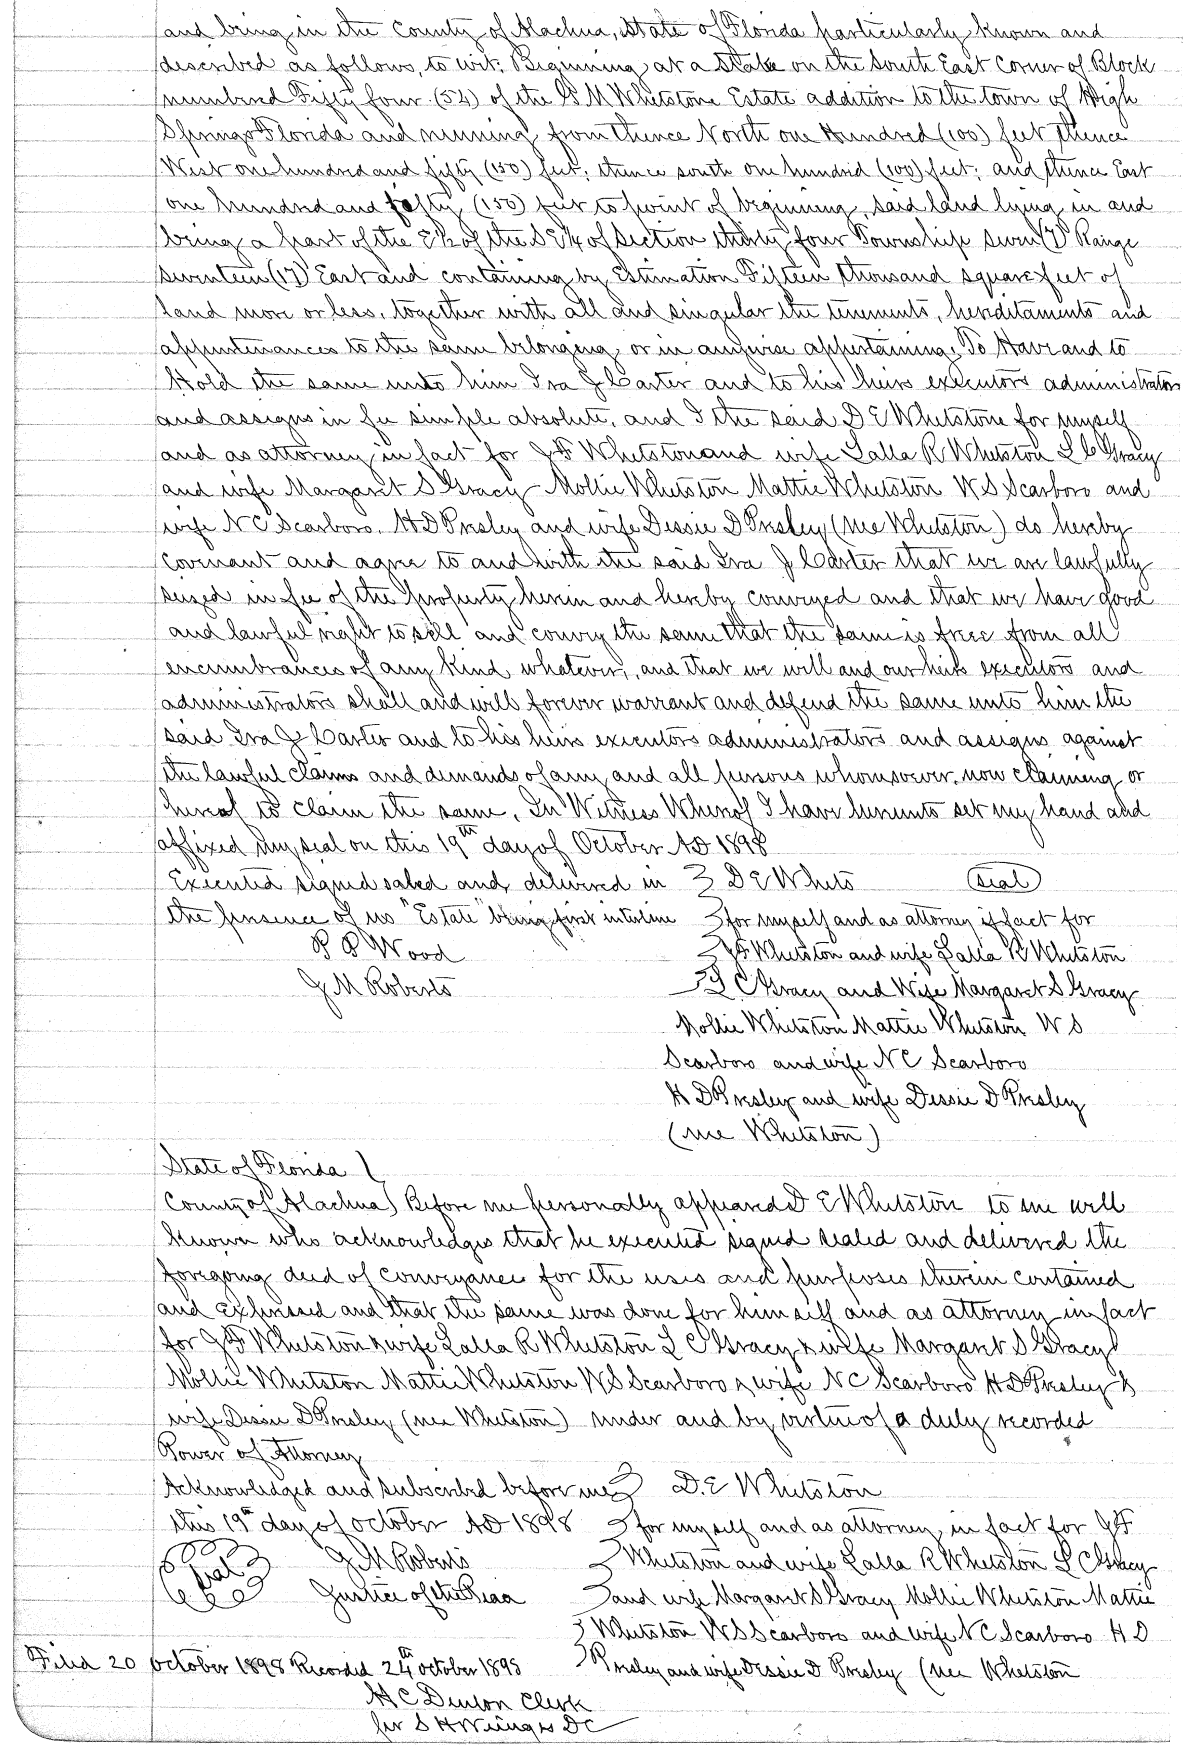 and being in the County of Alachua, State of Florida particularly known and
described as follows, to wit; Beginning at a Stake on the South East Corner of Block
numbered Fifty four (54) of the G M Whetstone Estate addition to the town of High
Springs Florida and running from thence North one Hundred (100) feet thence
West one hundred and fifty (150) feet; thence south one hundred (100) feet; and thence East
one hundred and fifty (150) feet to point of beginning, said land lying in and
being a part of the E½ of the SE¼ of Section thirty four Township seven (7) Range
seventeen (17) East and containing by Estimation Fifteen thousand square feet of
land more or less, together with all and singular the tenements, hereditaments and
appurtenances to the same belonging or in anywise appertaining; To Have and to
Hold the same unto him Ira J Carter and to his heirs executors administrators
and assigns in fee simple absolute, and I the said D E Whetstone for myself
and as attorney in fact for J F Whetston and wife Lalla R Whetston L C Gracy
and wife Margaret S Gracy Mollie Whetston Mattie Whetston W S Scarboro and
wife N C Scarboro, H D Presley and wife Dessie D Presley (nee Whetston) do hereby
covenant and agree to and with the said Ira J Carter that we are lawfully
seized in fee of the property herein and hereby conveyed and that we have good
and lawful right to sell and convey the same that the same is free from all
encumbrances of any kind whatever, and that we will and our heirs executors and
administrators shall and will forever warrant and defend the same unto him the
said Ira J Carter and to his heirs executors administrators and assigns against
the lawful claims and demands of any and all persons whomsoever, now claiming or
to claim the same. In Witness Whereof I have hereunto set my hand and
affixed my seal on this 19th day of October AD 1898
Executed signed sealed and delivered in D E Whets (seal)
the presence of us "Estate" being first interline for myself and as attorney if fact for
P P Wood J F Whetston and wife Lalla R Whetston
J M Roberts L C Gracy and Wife Margaret S Gracy
Mollie Whetston Mattie Whetston W S
Scarboro and wife N C Scarboro
H D Presley and wife Dessie D Presley
(nee Whetston)
State of Florida
County of Alachua) Before me personally appeared D E Whetston to me well
known who acknowledges that he executed signed sealed and delivered the
foregoing deed of conveyance for the uses and purposes therein contained
and expressed and that the same was done for himself and as attorney in fact
for J F Whetston & wife Lalla R Whetston L C Gracy & wife Margaret S Gracy
Mollie Whetston Mattie Whetston W S Scarboro & wife N C Scarboro H D Presley &
wife Dessie D Presley (nee Whetston) under and by virtue of a duly recorded
Power of Attorney
Acknowledged and subscribed before me D. E Whetston
this 19th day of October AD 1898 for myself and as attorney in fact for J F
(seal) J M Roberts Whetston and wife Lalla R Whetston L C Gracy
Justice of the Peace and wife Margaret S Gracy Mollie Whetston Mattie
Whetston W S Scarboro and wife N C Scarboro H D
Filed 20 October 1898 Recorded 24th October 1898 Presley and wife Dessie D Presley (nee Whetston
H C Denton Clerk
per S H Wienges DC